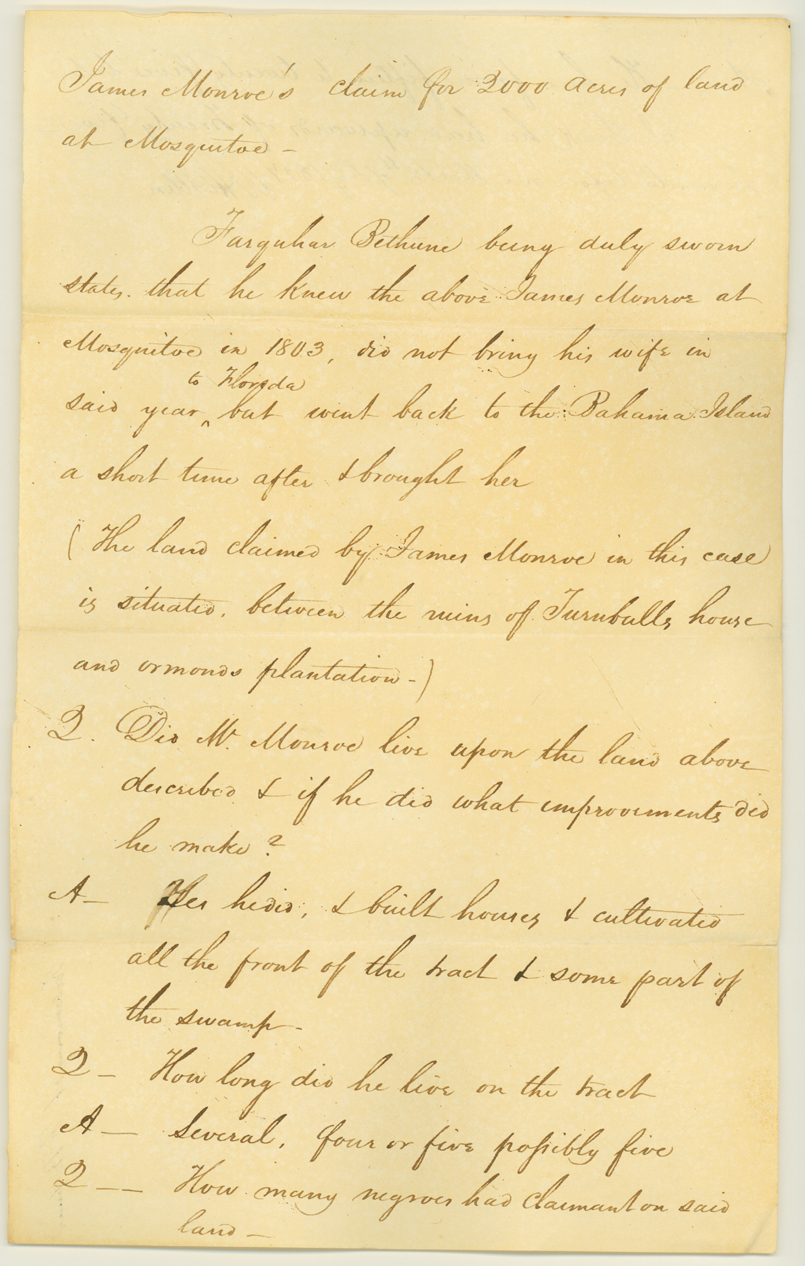 James Monroe's claim for 2000 acres of land
at Mosquitoe -
Farquhar Bethune being duly sworn
states. that he knew the above James Monroe at
Mosquitoe in 1803, did not bring his wife in
to Floreda
said year ‸ but went back to the Bahama Island
a short time after & brought her
(The land claimed by James Monroe in this case
is situated. between the ruins of Turnbulls house
and ormonds plantation -)
Q. Did Mr. Monroe live upon the land above
described & if he did what improvements did
he make?
A - Yes he did, & built houses & cultivated
all the front of the tract & some part of
the swamp -
Q - How long did he live on the tract
A - Several, four or five possibly five
Q - - How many negroes had claimant on said
land -